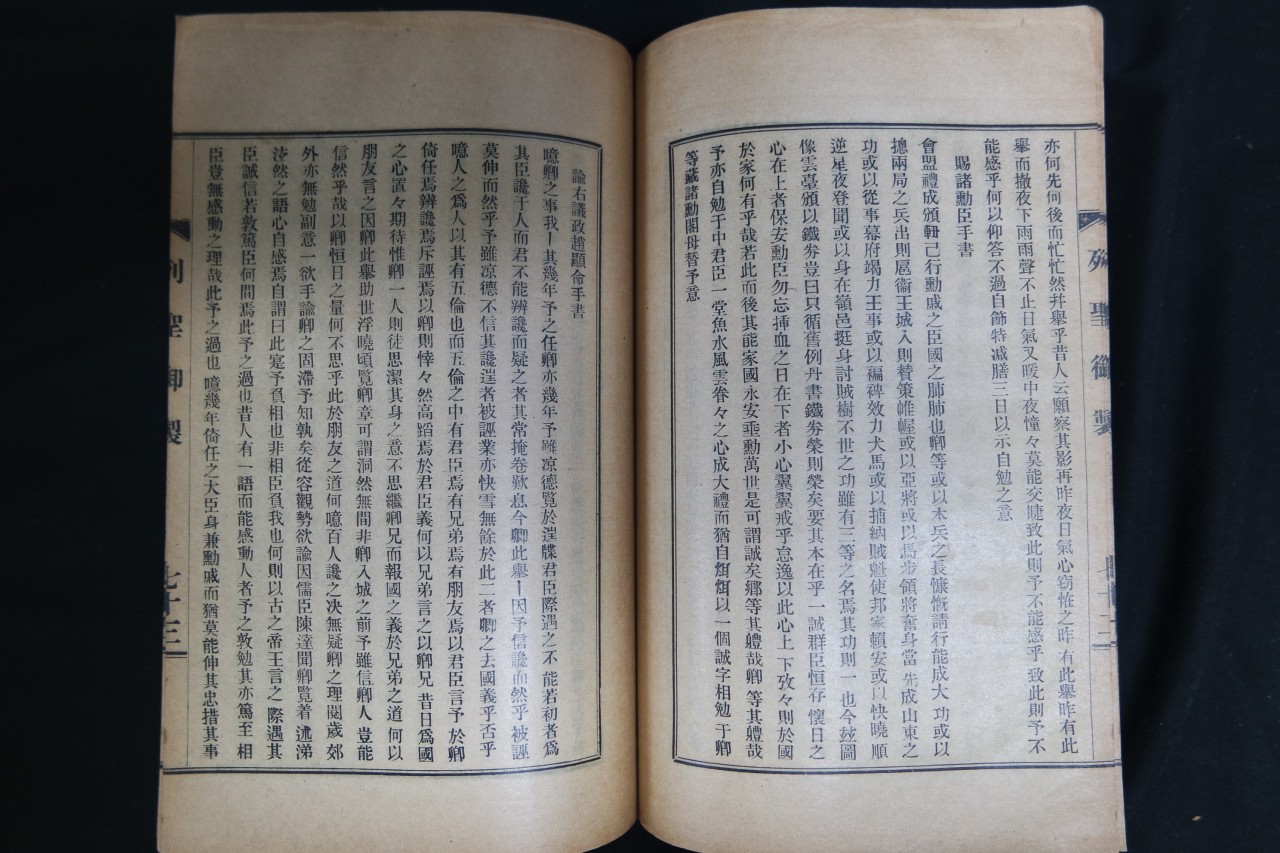 列聖御製
亦何先何後而忙忙然幷舉乎昔人云願察其影再昨夜日氣心窃恠之昨有此舉昨有此
舉而撤夜下雨雨聲不止日氣又暖中夜憧々莫能交睫致此則予不能感乎致此則予不
能感乎何以仰答不過自飭特减膳三日以示自勉之意
賜諸勳臣手書
會盟禮成頒輧己行動戚之臣國之肺肺也卿等或以本兵之長慷慨請行能成大功或以
摠兩局之兵出則扈衛王城入則替策帷幄或以亞將或以馬步領將奮身當先成山東之
功或以從事幕府竭力王事或以褊裨效力犬馬或以捕納賊魁使邦家賴安或以快曉順
逆星夜登聞或以身在嶺邑挺身討賊樹不世之功雖有三等之名焉其功則一也今玆圖
像雲臺頒以鐵券豈曰只循舊例丹書鐵券榮則榮矣要其本在乎一誠群臣恒存懷日之
心在上者保安勳臣勿忘揷血之日在下者小心翼翼戒乎怠逸以此心上下孜々則於國
於家何有乎哉若此而後其能家國永安垂勳萬世是可謂誠矣鄉等其軆哉卿等其軆哉
予亦自勉于中君臣一堂魚水風雲眷々之心成大禮而猶自焆焆以一個誠字相勉于卿
等藏諸勳閣毋替予意
諭右議政趙顯命手書
噫卿之事我亅其幾年予之任卿亦幾年予雖凉德覧於逞牒君臣際遇之不能若初者爲
其臣讒于人而君不能辨讒而疑之者其常掩卷歎息今卿此舉亅因予信讒而然乎被誣
莫伸而然乎予雖凉德不信其讒逞者被誣業亦快雪無餘於此二者卿之去國義乎否乎
噫人之爲人以其有五倫也而五倫之中有君臣焉有兄弟焉有朋友焉以君臣言予於卿
倚任焉辨讒焉斥誣焉以卿則悻々然高蹈焉於君臣義何以兄弟言之以卿兄昔日爲國
之心置々期待惟卿一人則徒思潔其身之意不思繼卿兄而報國之義於兄弟之道何以
朋友言之因卿此舉助世浮曉頃覧卿章可謂洞然無間非卿入城之前予雖信卿人豈能
信然乎哉以卿恒日之量何不思乎此於朋友之道何噫百人讒之决無疑卿之理閱歲郊
外亦無勉副意一欲手諭卿之固滯予知孰矣從容觀勢欲諭因儒臣陳達聞卿覧着逃涕
泫然之語心自感焉自謂曰此寔予負相也非相臣負我也何則以古之帝王言之際遇其
臣誠信若敦篤臣何間焉此予之過也昔人有一語而能感動人者予之敦勉其亦篤至相
臣豈無感動之理哉此予之過也噫幾年倚任之大臣身兼勳戚而猶莫能伸其忠措其事
列聖御製
七十三